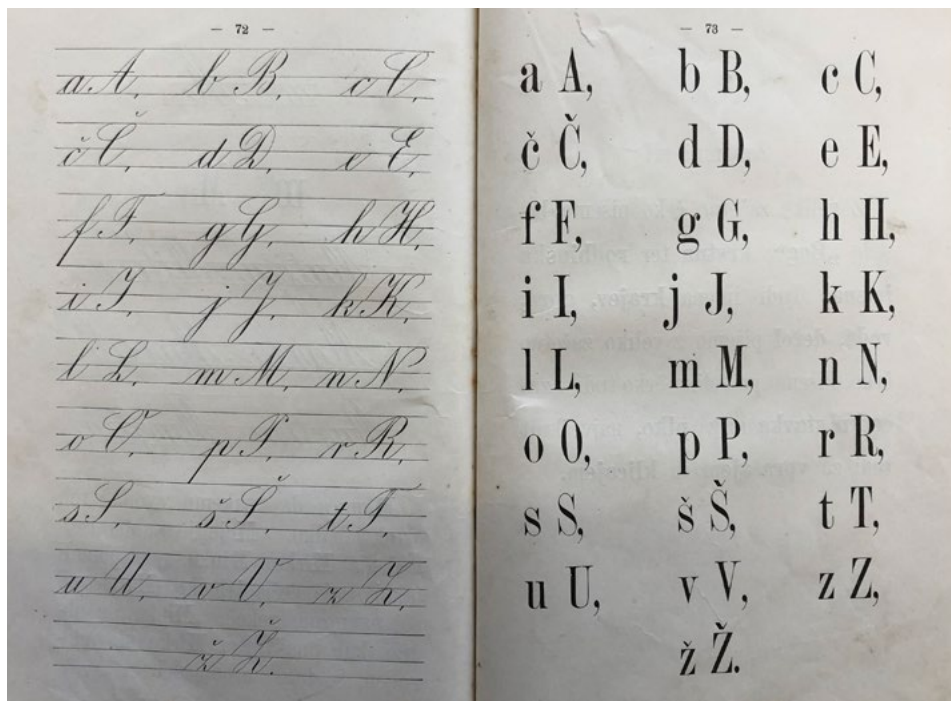 — 72 —
a A, b B, c C,
č Č, d D, e E,
f F, g G, h H,
i I, j J, k K,
l L, m M, n N,
o O, p P, r R,
s S, š Š, t T,
u U, v V, z Z,
ž Ž.
— 73 —
a A, b B, c C,
č Č, d D, e E,
f F, g G, h H,
i I, j J, k K,
l L, m M, n N,
o O, p P, r R,
s S, š Š, t T,
u U, v V, z Z,
ž Ž.